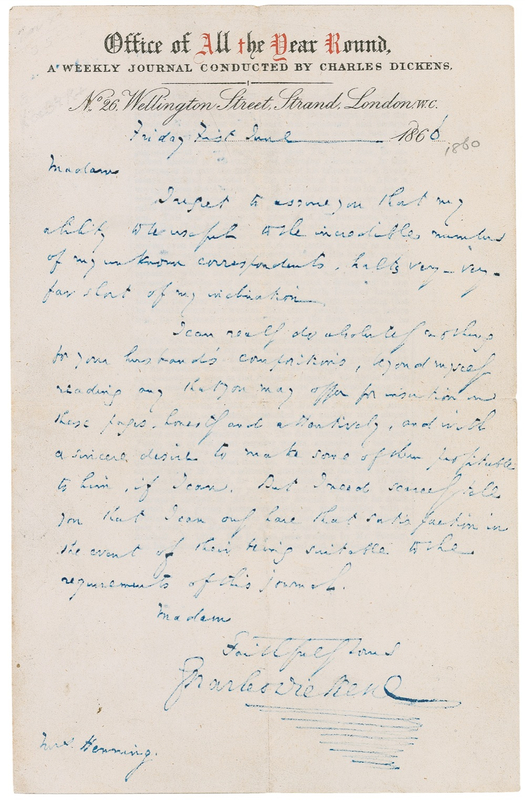 Office of All the Year Round,
A WEEKLY JOURNAL CONDUCTED BY CHARLES DICKENS.
No. 26, Wellington Street, Strand, London, W.C.
Friday First June 1860
1860
Madam
I regret to assure you that my
ability to be useful to the incredible numbers
of my unknown correspondents, halts very – very –
far short of my inclination
I can really do absolutely nothing
for your husband's compositions, beyond myself
reading any that you may offer for insertion in
these pages, honestly and attentively, and with
a sincere desire to make some of them profitable
to him, if I can. But I need scarcely tell
you that I can only have that satisfaction in
the event of their being suitable to the
requirements of this journal.
Madam
Faithfully Yours
Charles Dickens
Mrs. Henning.